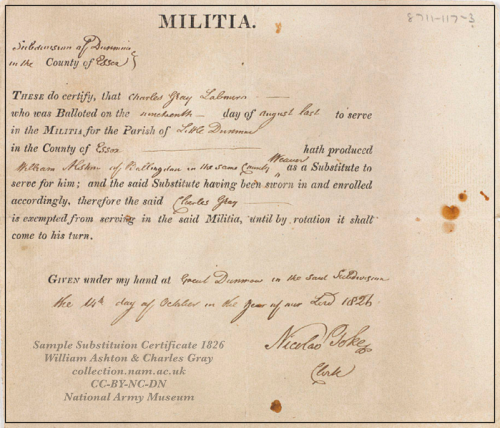 MILITIA.
8711-117-3
Subdivision of Dunmow
in the County of Essex
THESE do certify, that Charles Gray Labourer
who was Balloted on the nineteenth day of August last to serve
in the MILITIA for the Parish of Little Dunmow
in the County of Essex hath produced
William of Ballingdon in the same County Weaver as a Substitute to
serve for him; and the said Substitute having been sworn in and enrolled
accordingly, therefore the said Charles Gray
is exempted from serving in the said Militia, until by rotation it shall
come to his turn.
GIVEN under my hand at Great Dunmow in the said Subdivision
the 14th day of October in the Year of our Lord 1826
Clerk
Sample Substituion Certificate 1826
William Ashton & Charles Gray
collection.nam.ac.uk
CC-BY-NC-DN
National Army Museum